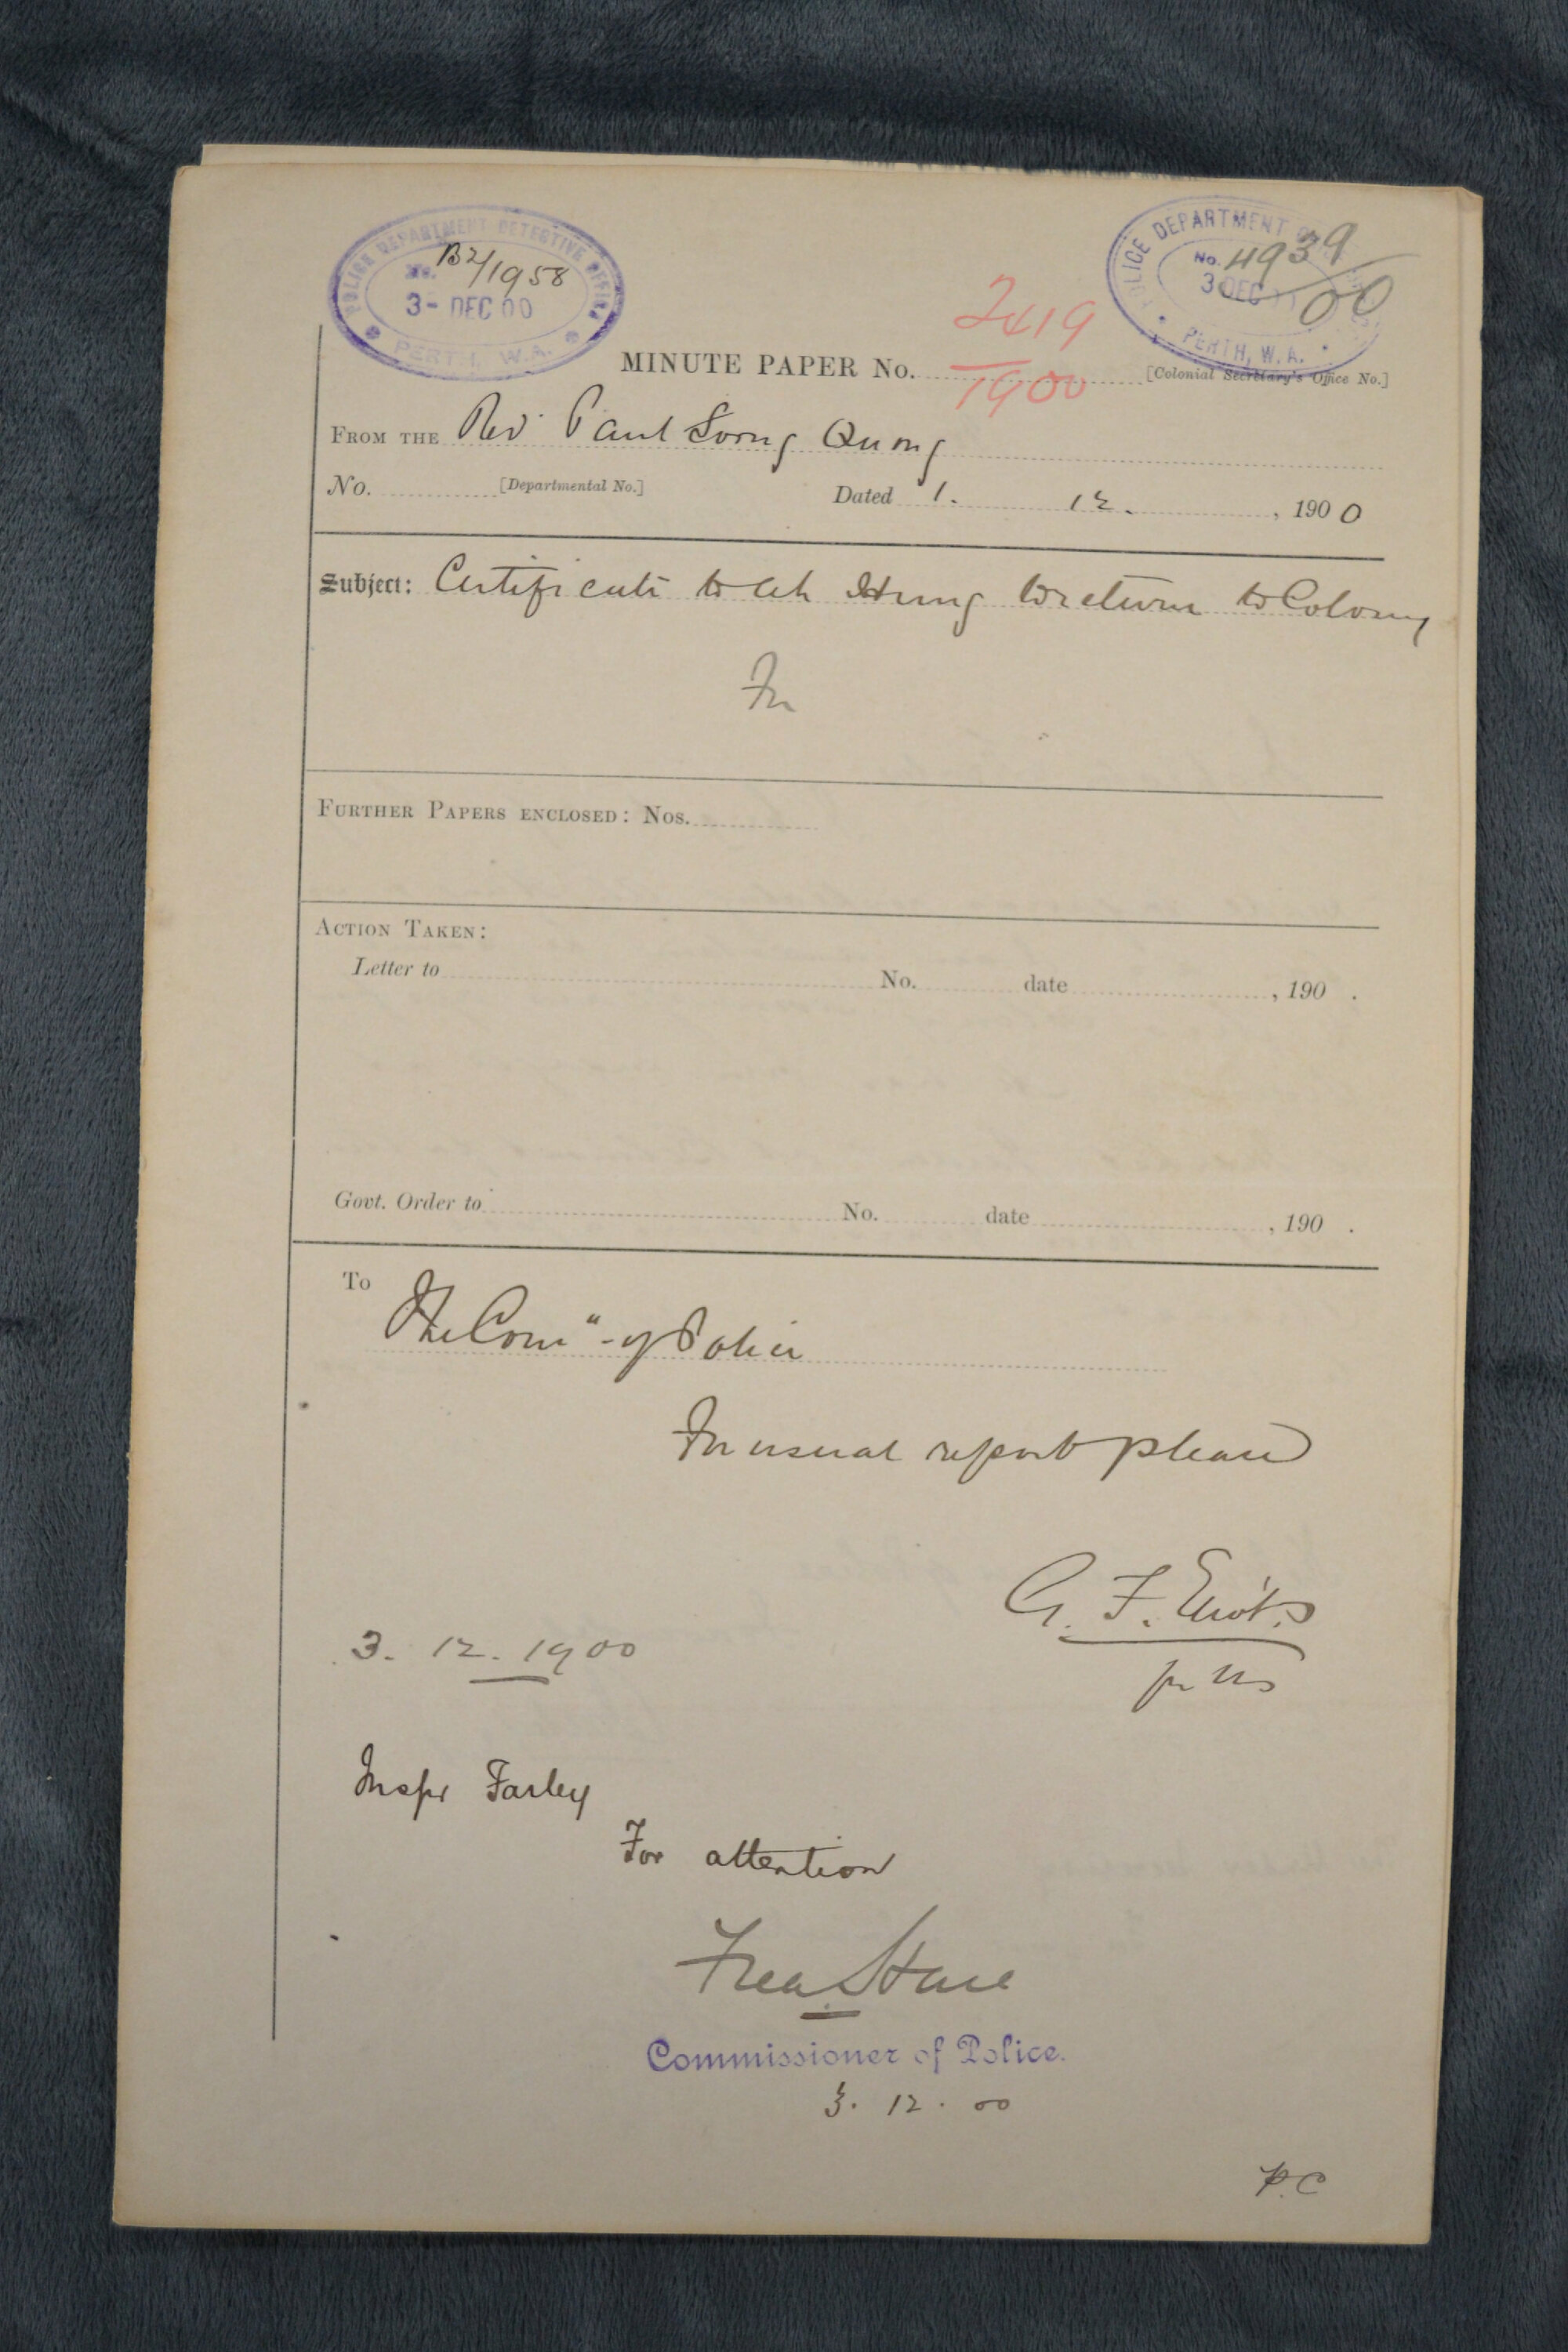 POLICE DEPARTMENT DETECTIVE OFFICE
No. B2/1958
3- DEC 00
PERTH, W.A.
POLICE DEPARTMENT
No. 4939/00
3 DEC 00
PERTH, W.A.
2419
1900
MINUTE PAPER No. [Colonial Secretary's Office No.]
FROM THE Revd Paul Soong Quong
No. [Departmental No.] Dated 1. 12. , 1900
Subject: Certificate to Ah Hung to return to Colony
In
FURTHER PAPERS ENCLOSED: Nos.
ACTION TAKEN:
Letter to No. date , 190 .
Govt. Order to No. date , 190 .
To
The Comr of Police
For usual report please
G. F. Eliot
3. 12. 1900
Inspr Farley
For attention
Fred Hare
Commissioner of Police.
3. 12. 00
P.C